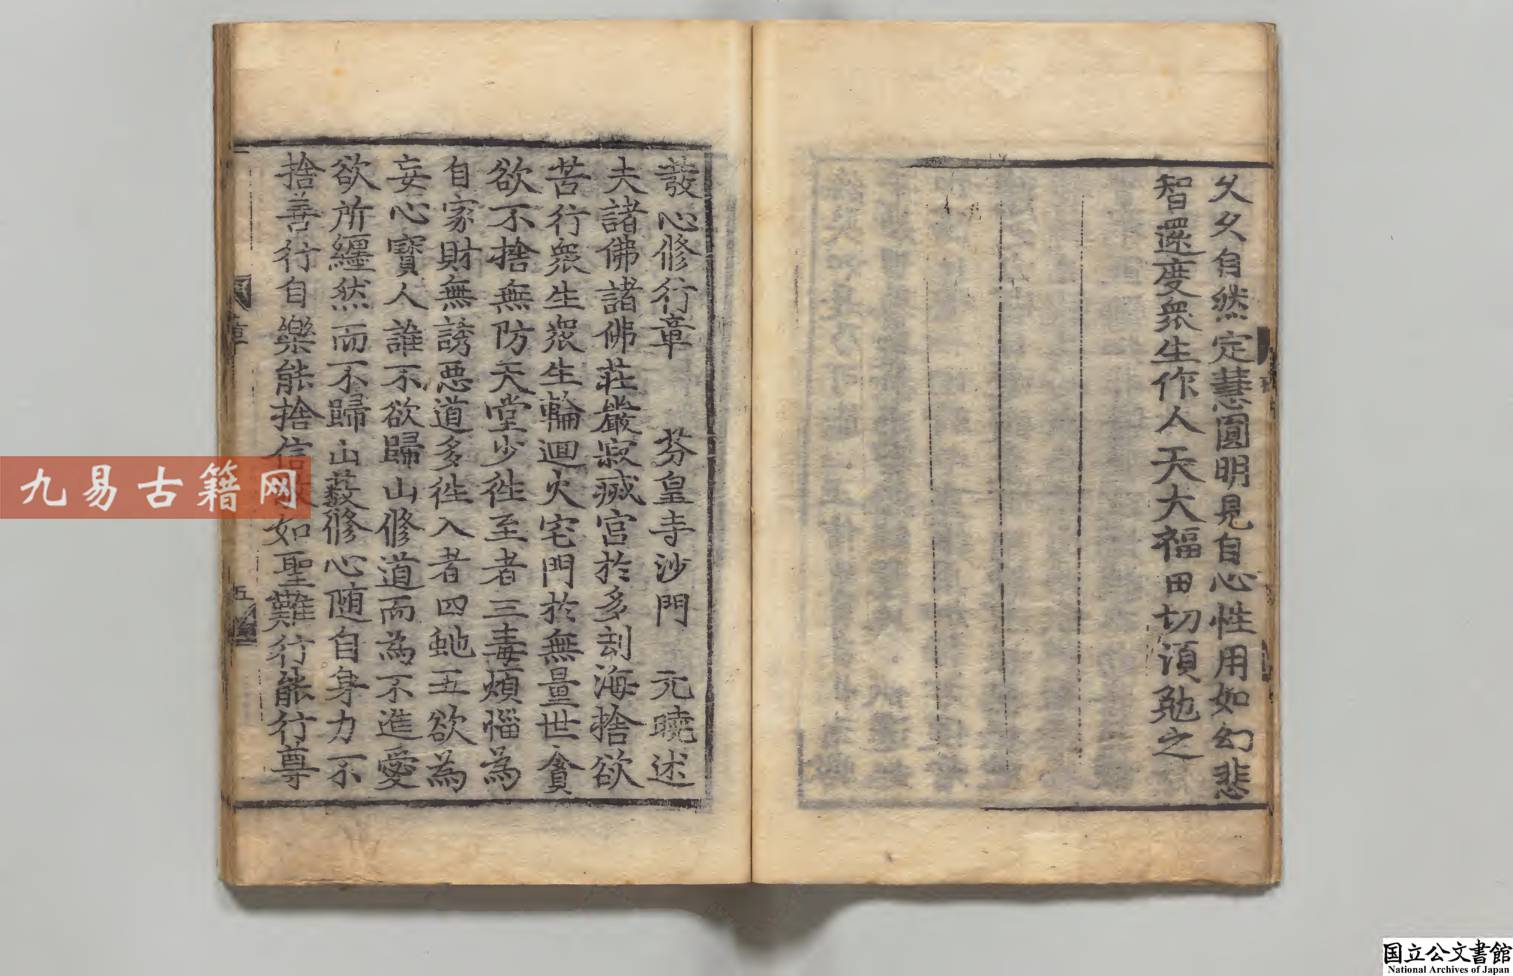 久久自然定慧圓明見自心性用如幻悲
智還度衆生作人天大福田切湏勉之
發心修行章 芬皇寺沙門 元曉述
夫諸佛諸佛莊嚴寂滅宮於多刼海捨欲
苦行衆生衆生輪迴火宅門於無量世貪
欲不捨無防天堂少徃至者三毒煩惱為
自家財無誘惡道多徃入者四虵五欲為
妄心寶人誰不欲歸山修道而為不進愛
欲所纏然而不歸山藪修心随自身力不
捨善行自樂能捨信如聖難行能行尊
章
五
九易古籍网
国立公文書館
National Archives of Japan